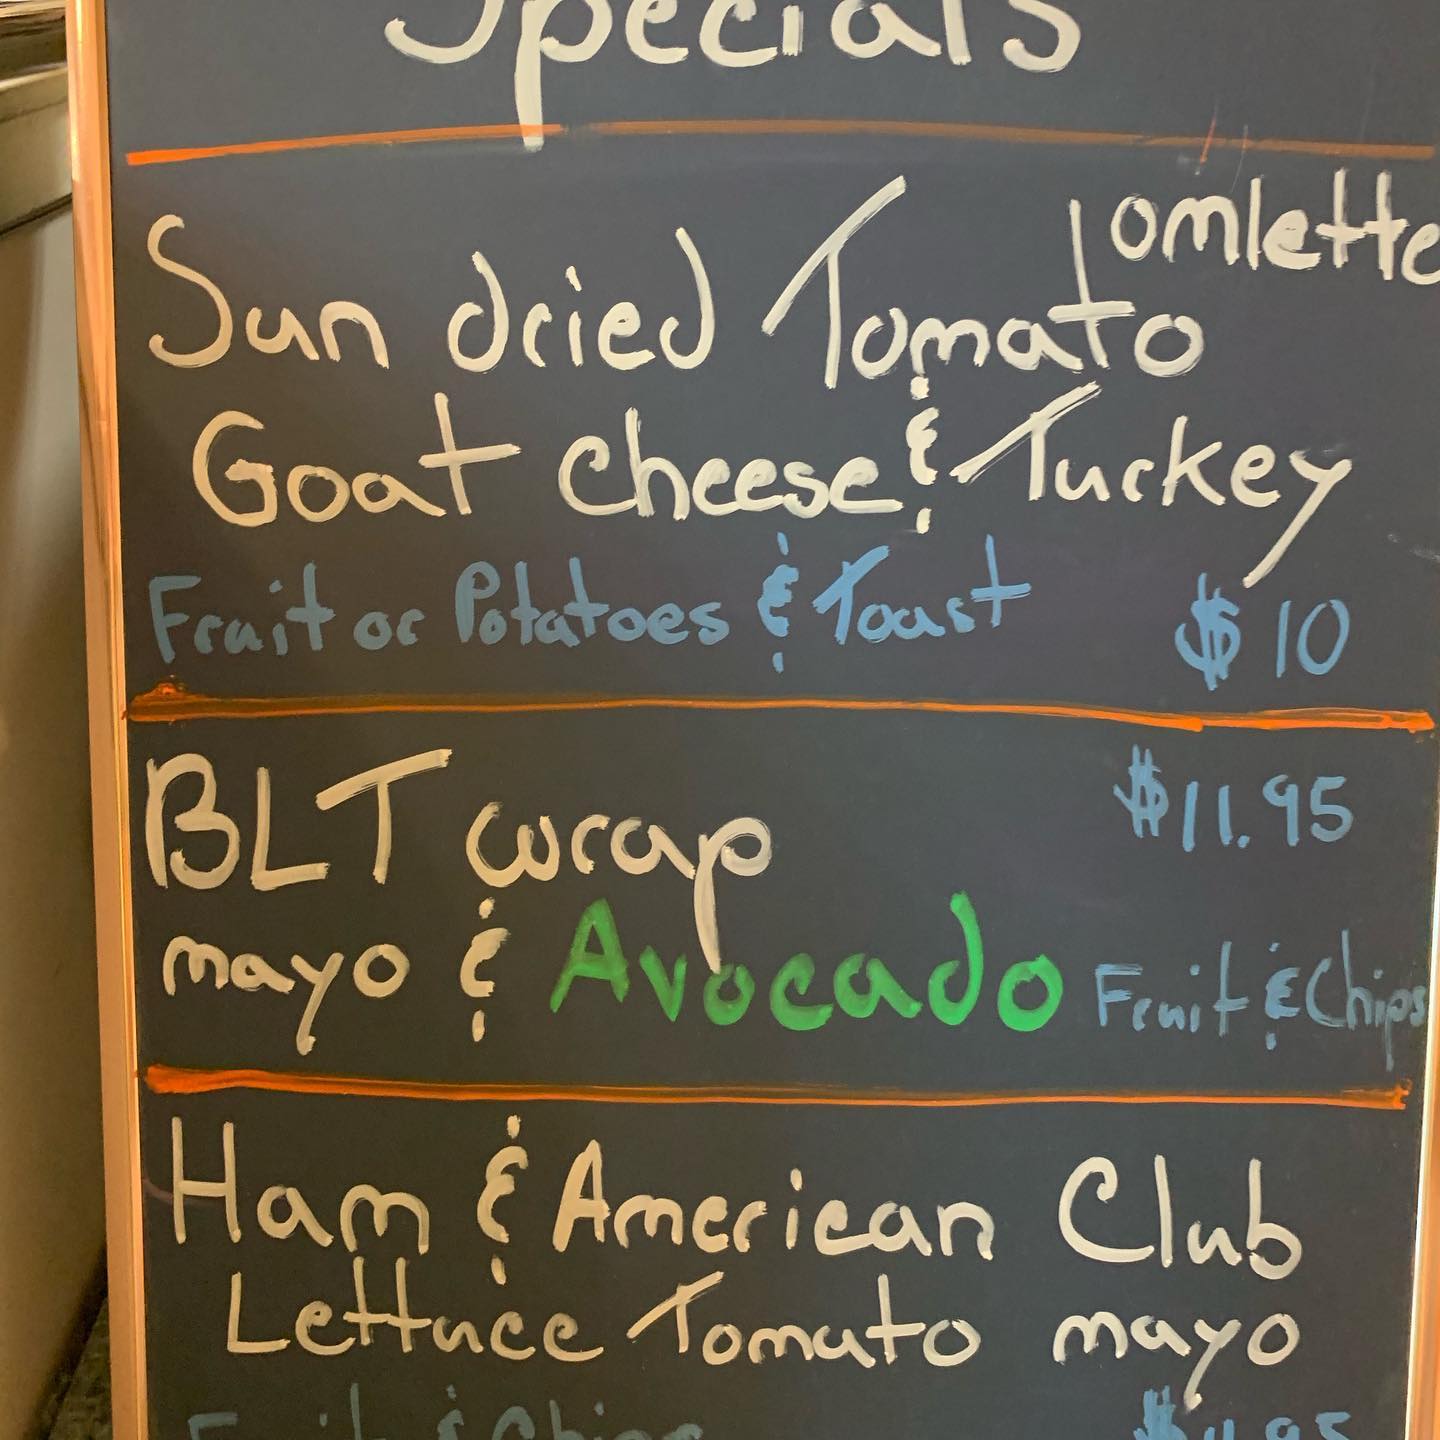 Specials
omlette
Sun dried Tomato
Goat cheese & Turkey
Fruit or Potatoes & Toast $10
BLT wrap $11.95
mayo & Avocado Fruit & Chips
Ham & American Club
Lettuce Tomato mayo
Fruit & Chips